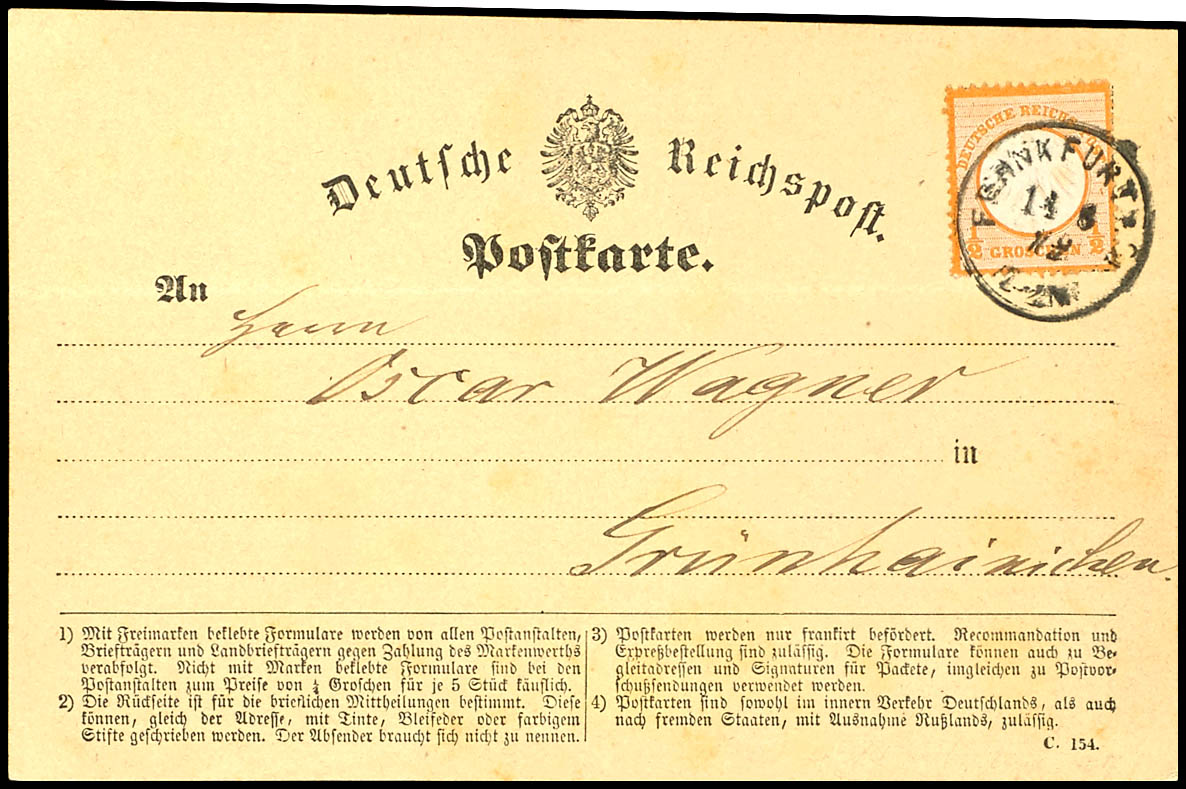 Deutsche Reichspost.
Postkarte.
DEUTSCHE REICHS
½ GROSCHEN ½
FRANKFURT
14 8
72
An
Herrn
Oscar Wagner
in
Grünhainichen
1) Mit Freimarken beklebte Formulare werden von allen Postanstalten,
Briefträgern und Landbriefträgern gegen Zahlung des Markenwerths
verabfolgt. Nicht mit Marken beklebte Formulare sind bei den
Postanstalten zum Preise von ¼ Groschen für je 5 Stück käuflich.
2) Die Rückseite ist für die brieflichen Mittheilungen bestimmt. Diese
können, gleich der Adresse, mit Tinte, Bleifeder oder farbigem
Stifte geschrieben werden. Der Absender braucht sich nicht zu nennen.
3) Postkarten werden nur frankirt befördert. Recommandation und
Expreßbestellung sind zulässig. Die Formulare können auch zu Be-
gleitadressen und Signaturen für Packete, imgleichen zu Postvor-
schußsendungen verwendet werden.
4) Postkarten sind sowohl im innern Verkehr Deutschlands, als auch
nach fremden Staaten, mit Ausnahme Rußlands, zulässig.
C. 154.